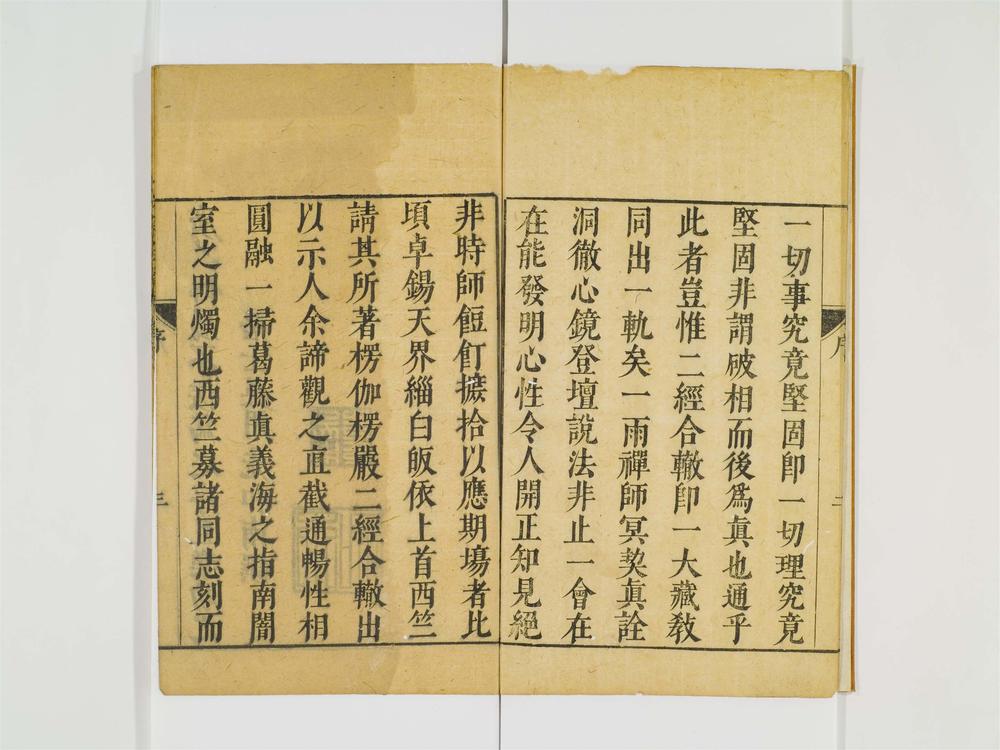 序
二
一切事究竟堅固即一切理究竟
堅固非謂破相而後爲眞也通乎
此者豈惟二經合轍即一大藏敎
同出一軌矣一雨禪師冥契眞詮
洞徹心鏡登壇說法非止一會在
在能發明心性令人開正知見絕
非時師飣飣摭拾以應期場者比
頃卓錫天界緇白皈依上首西竺
請其所著楞伽楞嚴二經合轍出
以示人余諦觀之直截通暢性相
圓融一掃葛藤眞義海之指南闇
室之明燭也西竺募諸同志刻而
序
三